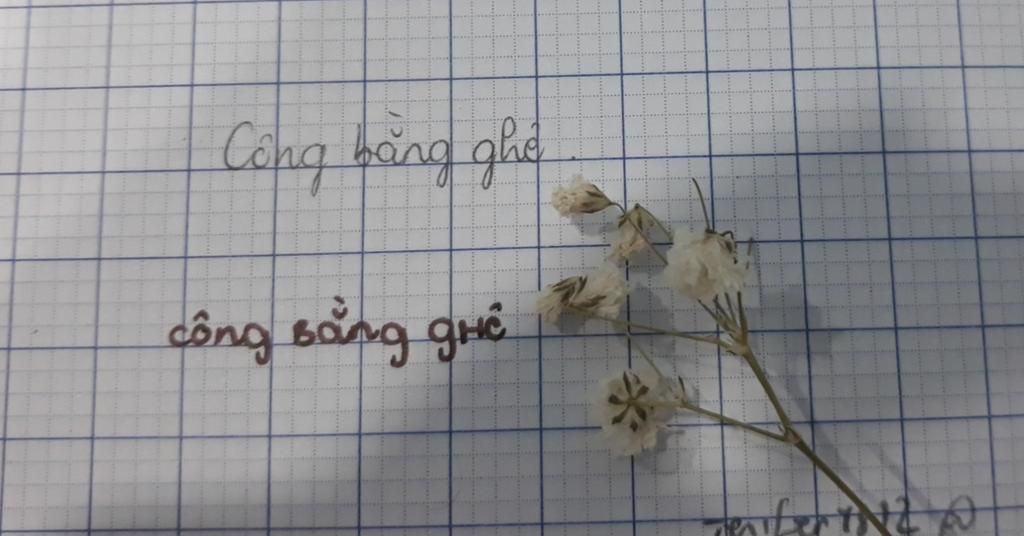 Công bằng ghê.
công bằng ghê